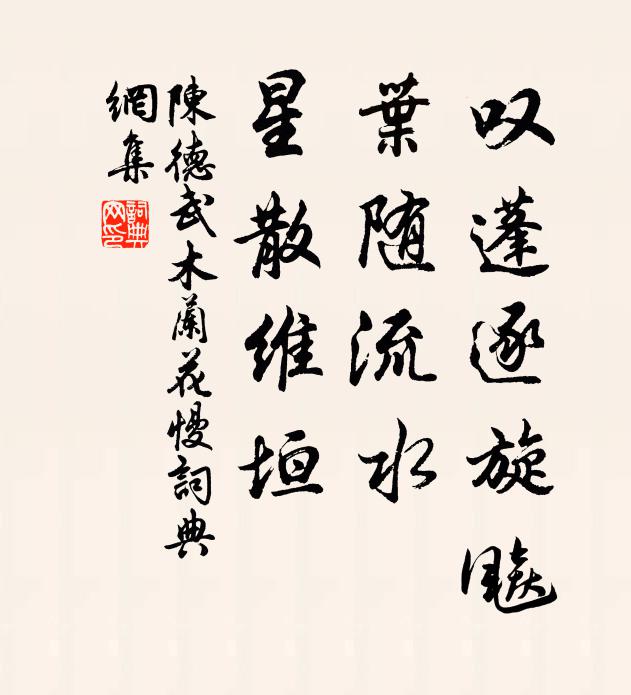 叹蓬逐旋飚
葉随流水
星散维垣
陳德武木蘭花慢詞典
網集
詞典
网印